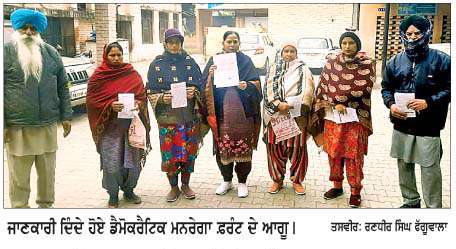 ਜਾਣਕਾਰੀ ਦਿੰਦੇ ਹੋਏ ਡੈਮੋਕਰੈਟਿਕ ਮਨਰੇਗਾ ਫ਼ਰੰਟ ਦੇ ਆਗੂ। ਤਸਵੀਰ: ਰਣਧੀਰ ਸਿੰਘ ਫੱਗੂਵਾਲਾ